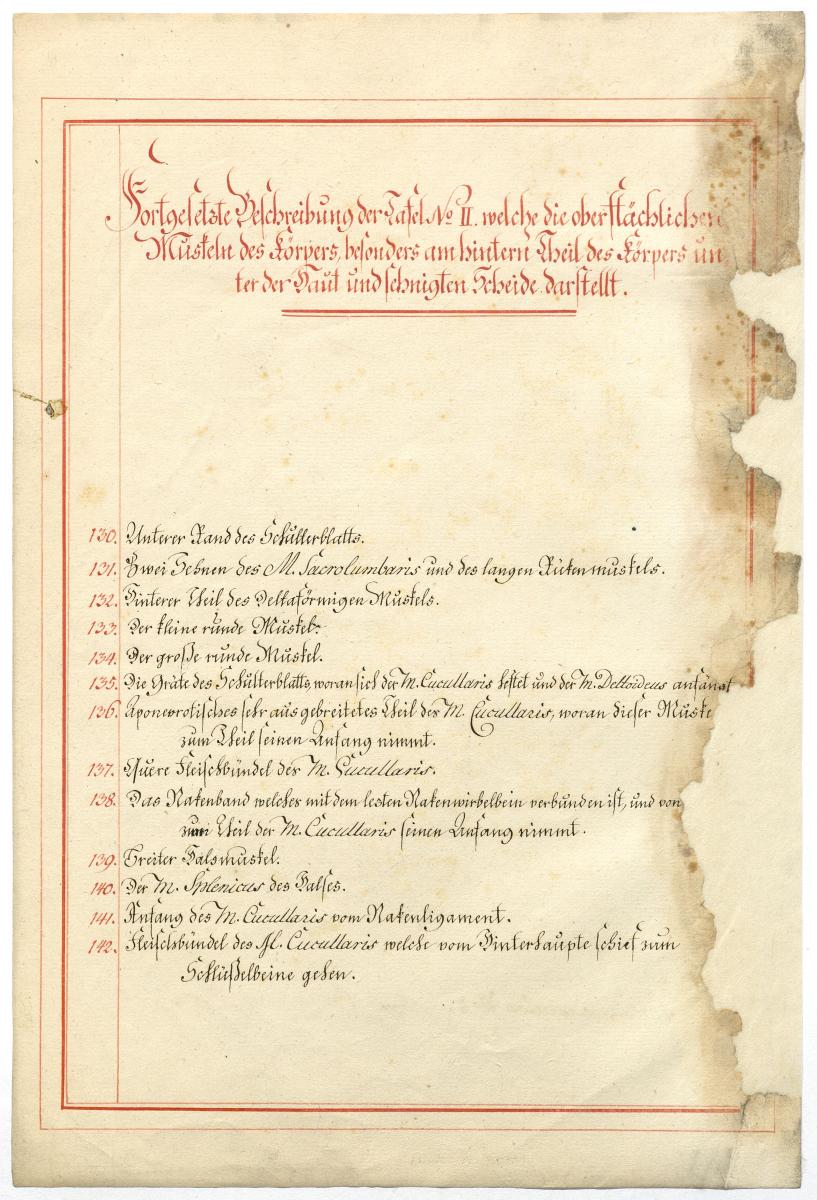 Fortgesetzte Beschreibung der Tafel No II. welche die oberflächlichen
Muskeln des Körpers, besonders am hintern Theil des Körpers un
ter der Haut und sehnigten Scheide darstellt.
130. Unterer Rand des Schulterblatts.
131. Zwei Sehnen des M. Sacrolumbaris und des langen Rückenmuskels.
132. Hinterer Theil des Deltaförmigen Muskels.
133. Der kleine runde Muskel.
134. Der große runde Muskel.
135. Die Gräte des Schulterblatts, woran sich der M. Cucullaris heftet und der M. Deltoideus anfängt
136. Aponevrotisches sehr ausgebreitetes Theil der M. Cucullaris, woran dieser Muske
zum Theil seinen Anfang nimmt.
137. Quere Fleischbündel der M. Cucullaris.
138. Das Nakenband welches mit dem lezten Nakenwirbelbein verbunden ist, und von
zum Theil der M. Cucullaris seinen Anfang nimmt.
139. Breiter Halsmuskel.
140. Der M. Splenicus des Halses.
141. Anfang des M. Cucullaris vom Nakenligament.
142. Fleischbündel des M. Cucullaris welche vom Hinterhaupte schief zum
Schlüßelbeine gehen.